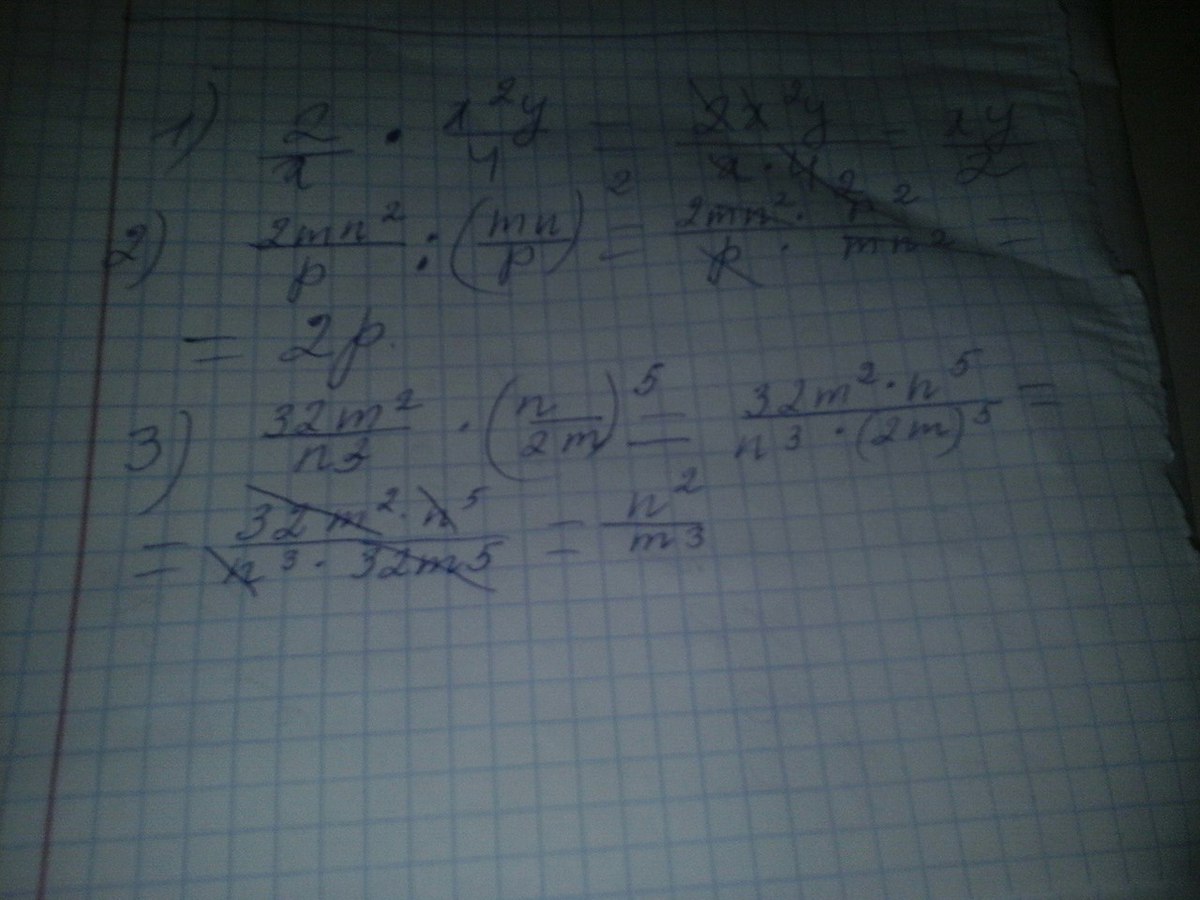 1) 2/x · x²y/4 = 2x²y/x·4 2 = xy/2
2) 2mn²/p : (mn/p)² = 2mn²· p²/p · mn² =
= 2p.
3) 32m²/n³ · (n/2m)⁵ = 32m²·n⁵/n³·(2m)⁵ =
= 32m²·n⁵/n³·32m5 = n²/m3